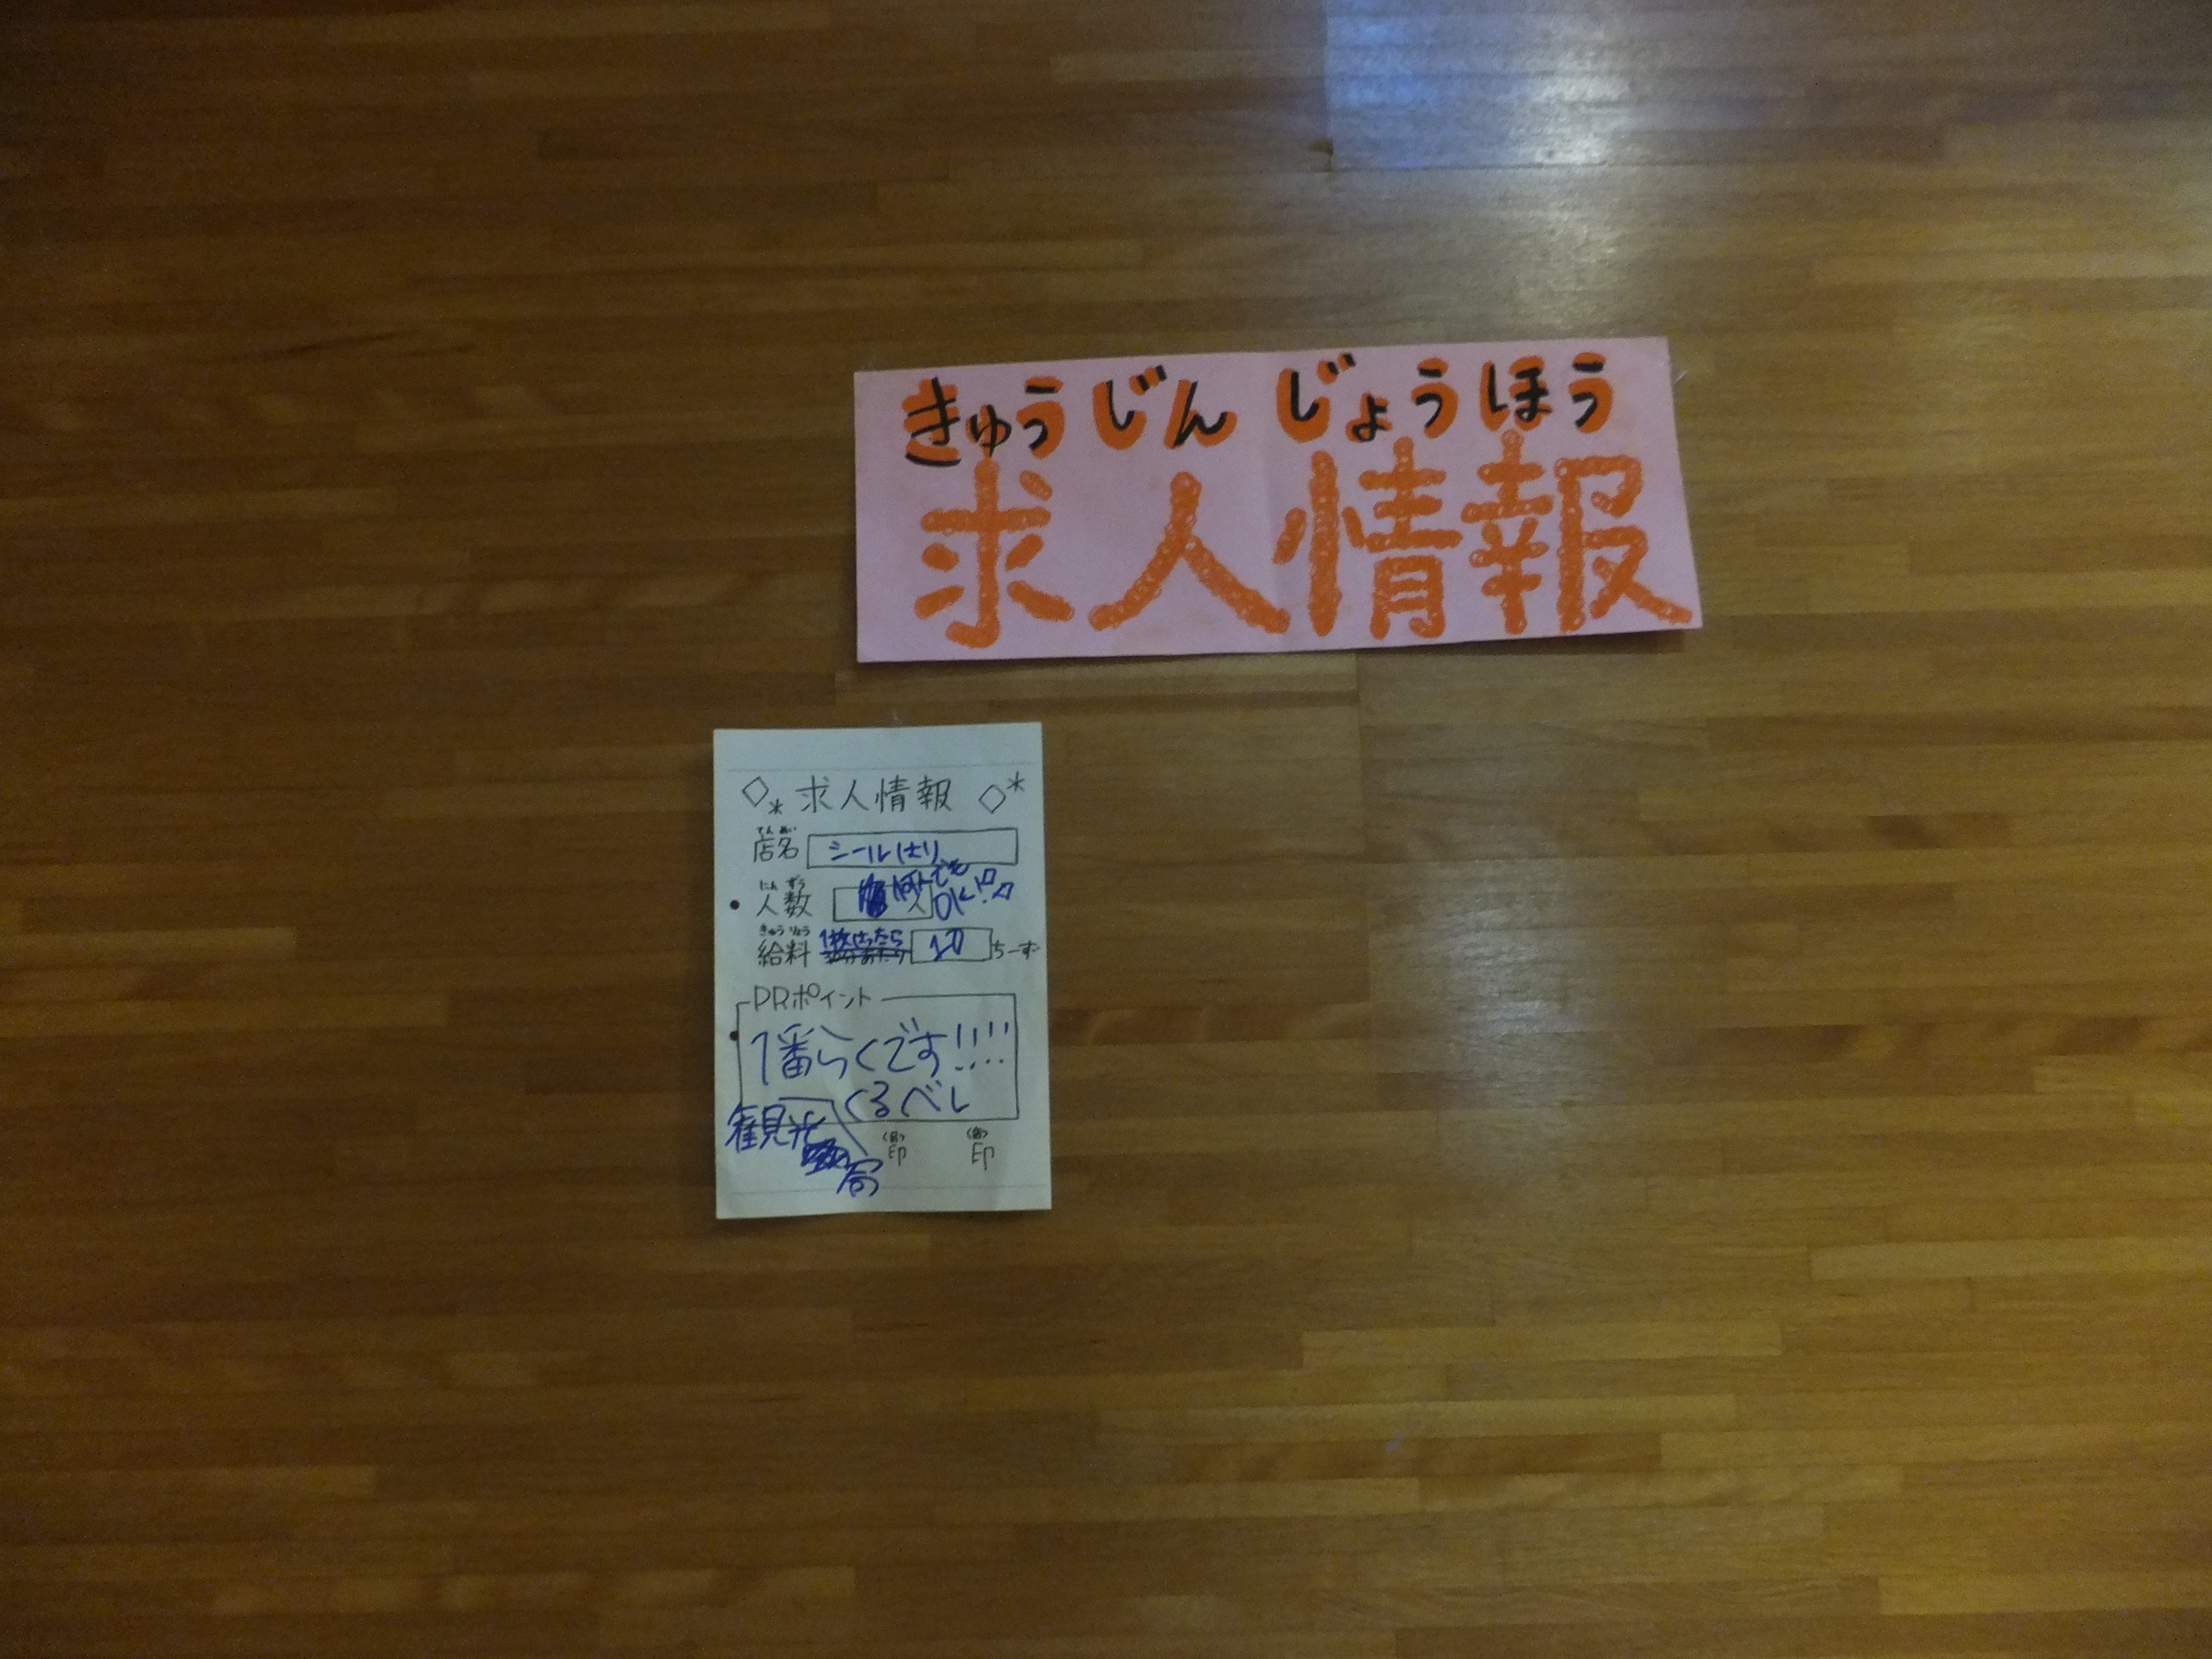 きゅうじんじょうほう
求人情報
求人情報
てんめい
店名 シールはり
にんずう
人数 何人でもOK!!
きゅうりょう
給料 1枚はったら 10 ちーず
PRポイント
1番らくです!!!!
くるべし
観光局
印 印